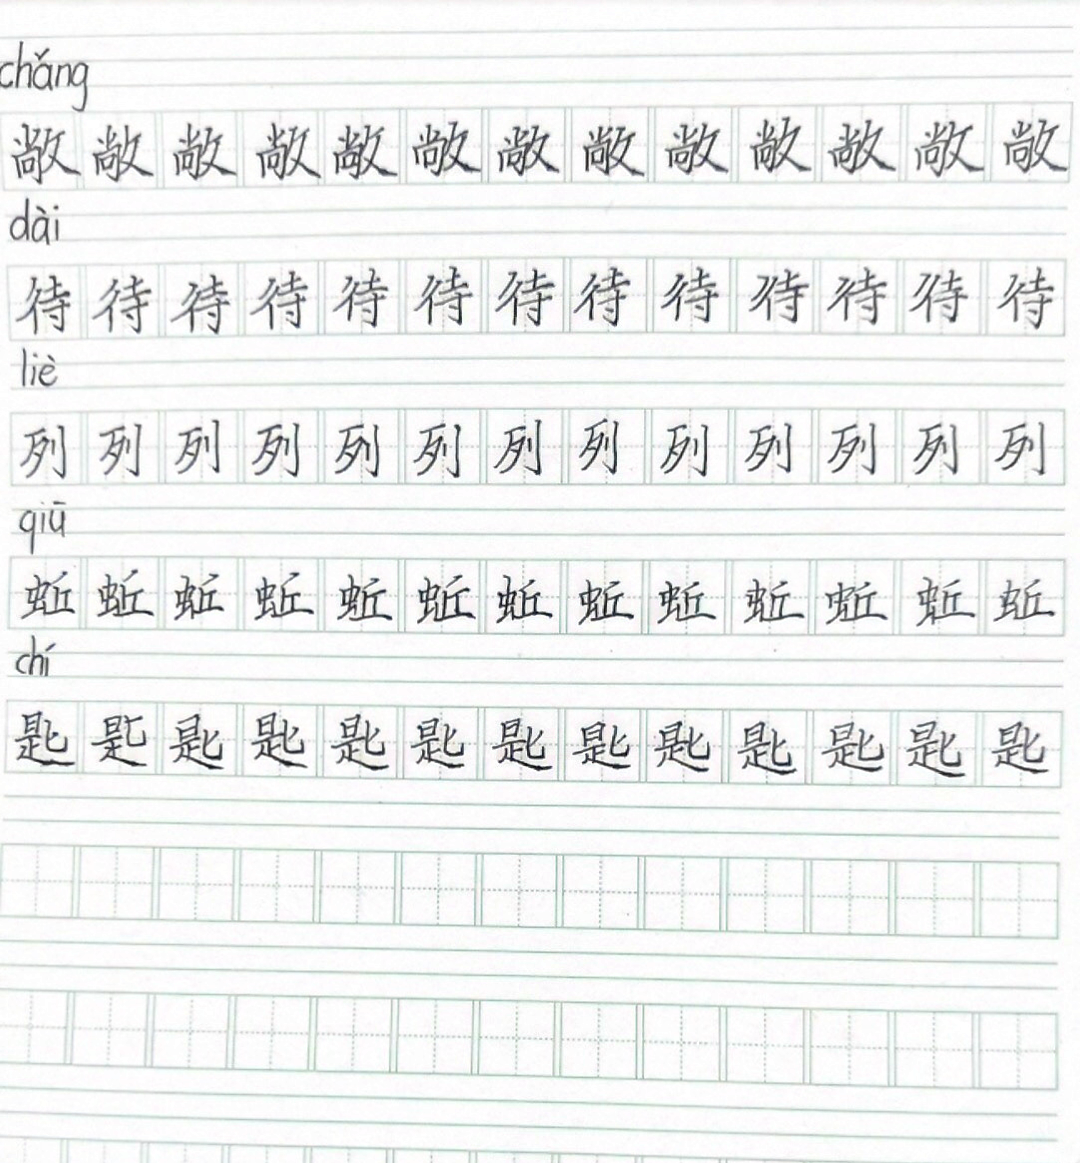 chǎng
敞敞敞敞敞敞敞敞敞敞敞敞敞
dài
待待待待待待待待待待待待待
liè
列列列列列列列列列列列列列
qiū
蚯蚯蚯蚯蚯蚯蚯蚯蚯蚯蚯蚯蚯
chí
匙匙匙匙匙匙匙匙匙匙匙匙匙